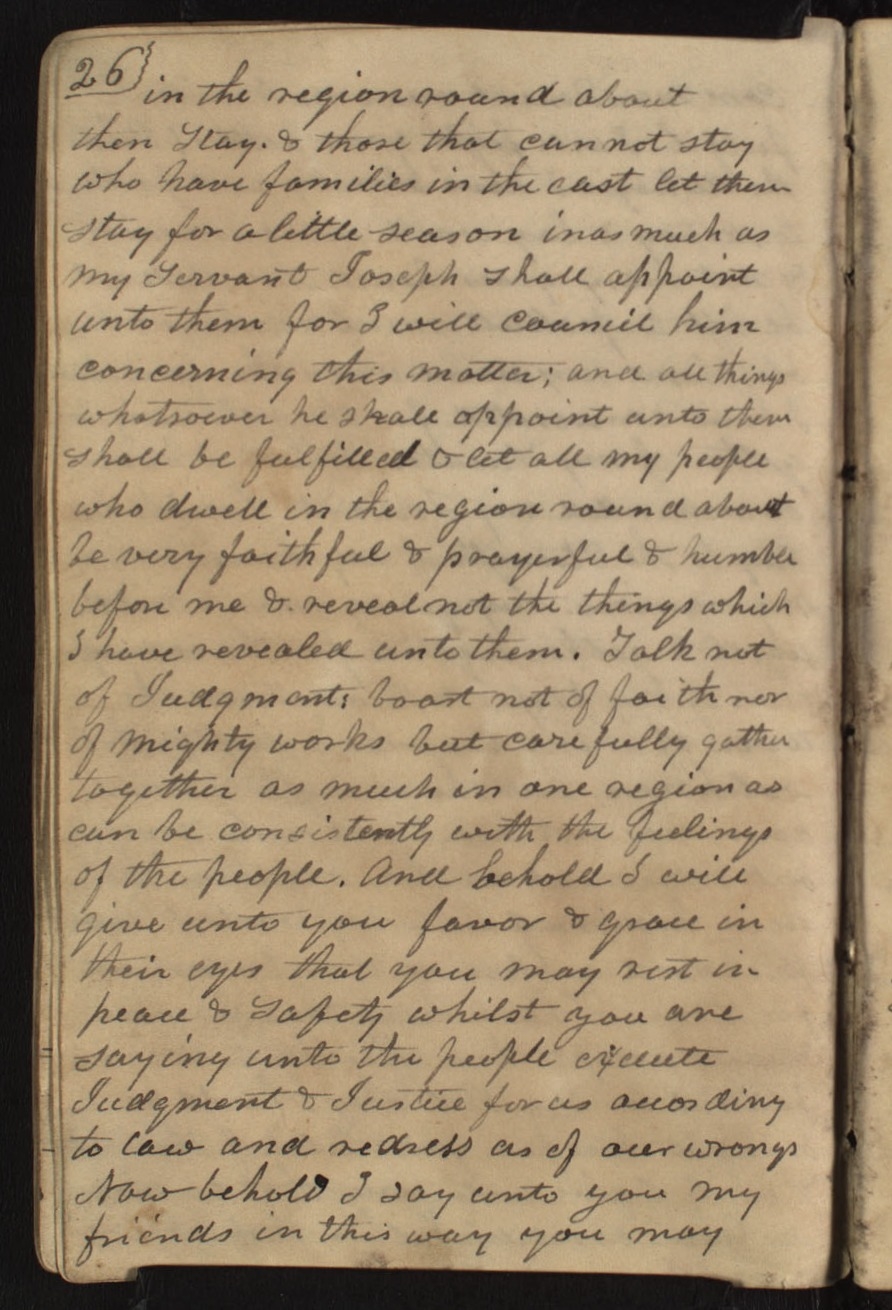 26}
in the region round about
then Stay. & those that can not stay
who have families in the east let them
stay for a little season inas much as
my Servant Joseph shall appoint
unto them for I will councuil him
concerning this matter; and all things
whatsoever he shall appoint unto them
shall be fulfilled & let all my people
who dwell in the region round about
be very faithful & prayerful & humble
before me & reveal not the things which
I have revealed unto them. Talk not
of Judgment: boast not of faith nor
of mighty works but carefully gather
together as much in one region as
can be consistently with the feelings
of the people. And behold I will
give unto you favor & grace in
their eyes that you may rest in
peace & Safety whilst you are
saying unto the people execute
Judgment & Justice for us according
to law and redress as of our wrongs
Now behold I say unto you my
friends in this way you may